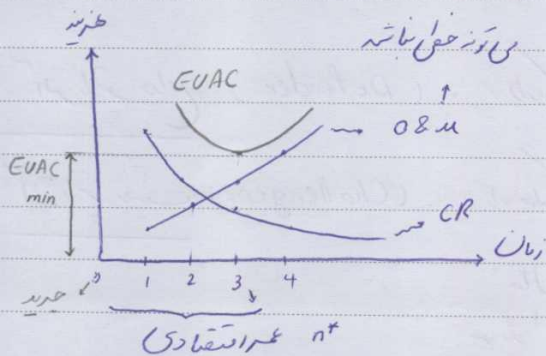 هزینه
می تواند خطی نباشد
EUAC
O&M
EUAC
min
CR
زمان
0 1 2 3 4
خرید
عمر اقتصادی n*